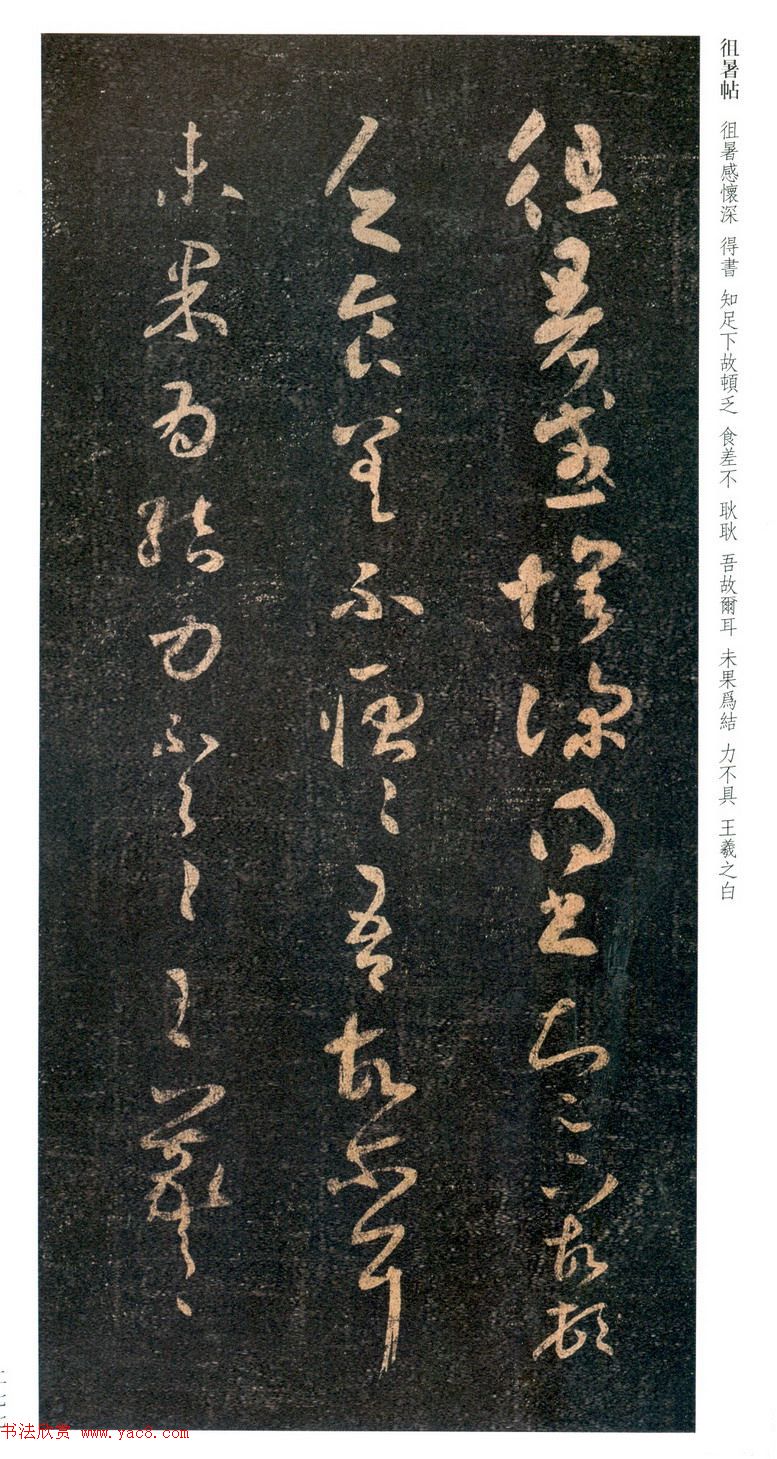 徂暑帖 徂暑感懷深 得書 知足下故頓乏 食差不 耿耿 吾故爾耳 未果爲結 力不具 王羲之白
徂暑感懷深得書知足下故頓
乏食差不耿〻吾故爾耳
未果為結力不具〻王羲之〻
二七
书法欣赏 www.yac8.com